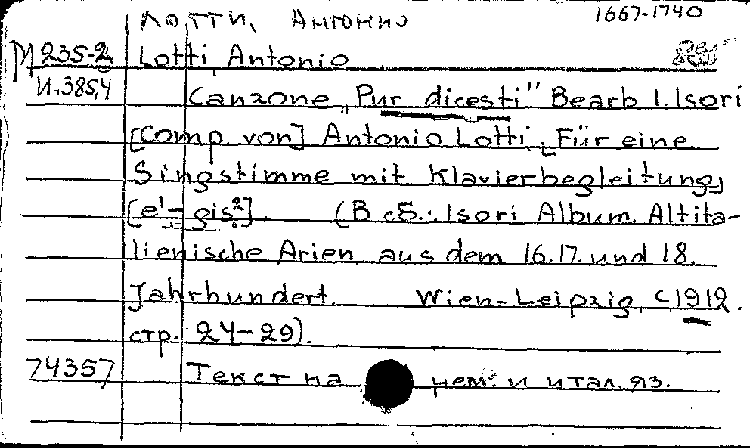 ЛОТТИ, Антонио 1667-1740
М 235-2 Lotti, Antonio
И.385,4 Canzone „Pur dicesti" Bearb I. Isori
[Comp. von] Antonio Lotti, Für eine
Singstimme mit Klavierbegleitung,
[e¹-gis²]. (В сб.: Isori Album. Altita-
lienische Arien aus dem 16. 17. und 18.
Jahrhundert. Wien-Leipzig, c1912.
стр. 24-29).
74357 Текст на нем. и итал. яз.